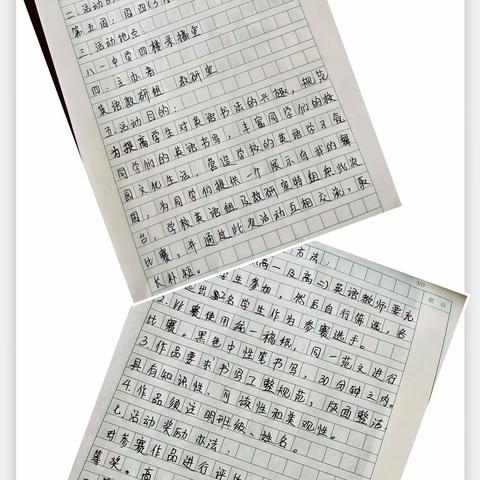 第五周:周四(3月
三.活动地点
八一中学四楼录播室
四.主办者
英语教研组 教研室
五.活动目的:
为提高学生对英语书法的兴趣,规范
同学们的英语书写,丰富同学们的校
园文化生活,营造学校的英语学习氛
围,为同学们提供一个展示自我的舞
台,学校英语组及教研室特组织此次
比赛,并通过此次活动互相交流,取
长补短。
方法:
(高一及高二)英语教师要充
学生参加,然后自行筛选,各
选出 2名学生作为参赛选手。
2.比赛使用统一稿纸,同一范文进行
比赛。黑色中性笔书写,30分钟之内。
3.作品要求书写工整规范,版面整洁
具有知识性、可读性和美观性。
4.作品须注明班级、姓名。
七.活动奖励办法:
对参赛作品进行评
等奖。高